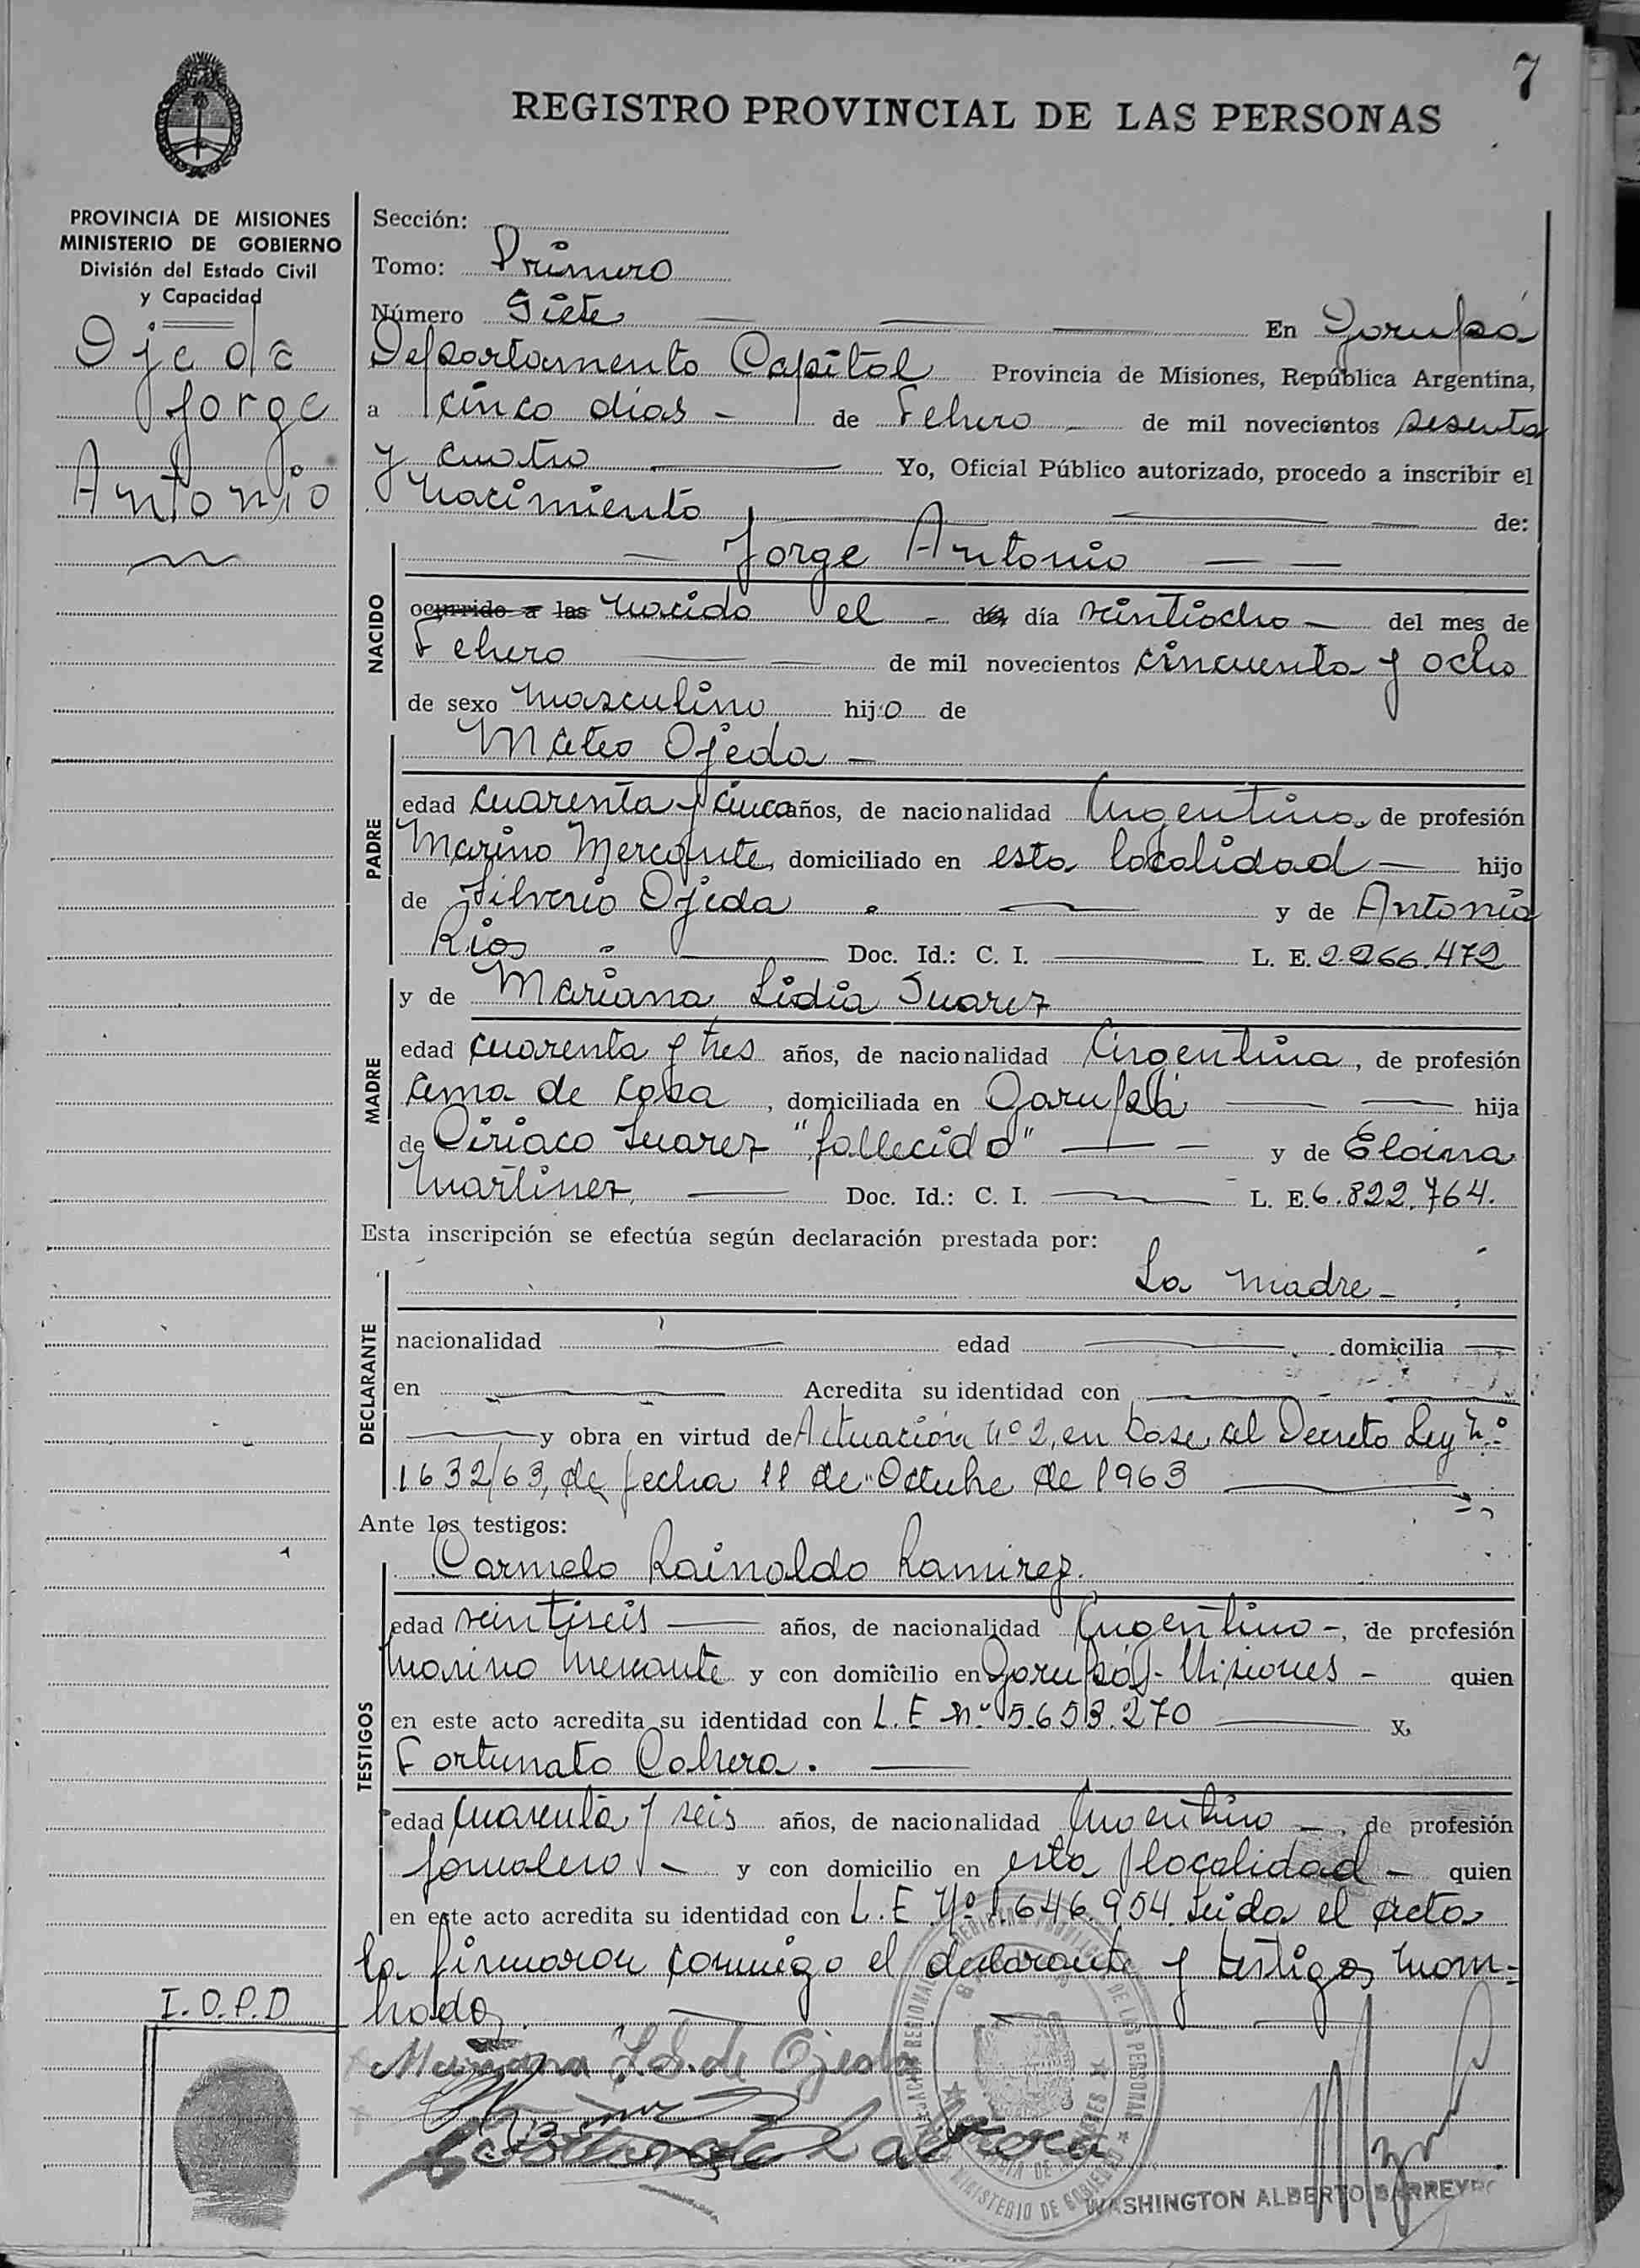 7
REGISTRO PROVINCIAL DE LAS PERSONAS
PROVINCIA DE MISIONES
MINISTERIO DE GOBIERNO
División del Estado Civil
y Capacidad
Ojeda
Jorge
Antonio
Sección:
Tomo: Primero
Número Siete En Garupá
Departamento Capital Provincia de Misiones, República Argentina,
a cinco días - de Febrero - de mil novecientos sesenta
y cuatro Yo, Oficial Público autorizado, procedo a inscribir el
nacimiento de:
NACIDO
Jorge Antonio
ocurrido a las nacido el - día veintiocho - del mes de
Febrero de mil novecientos cincuenta y ocho
de sexo masculino hijo de
PADRE
Mateo Ojeda -
edad cuarenta y cinco años, de nacionalidad Argentina, de profesión
Marino Mercante, domiciliado en esta localidad - hijo
de Silverio Ojeda y de Antonia
Rios Doc. Id.: C. I. L. E. 2.266.472
MADRE
y de Mariana Lidia Suarez
edad cuarenta y tres años, de nacionalidad Argentina, de profesión
ama de casa, domiciliada en Garupá hija
de Ciriaco Suarez "fallecido" y de Eloina
Martinez Doc. Id.: C. I. L. E. 6.822.764.
Esta inscripción se efectúa según declaración prestada por:
DECLARANTE
La madre -
nacionalidad edad domicilia
en Acredita su identidad con
y obra en virtud de Actuación Nº 2, en base al Decreto Ley Nº
1632/63, de fecha 11 de Octubre de 1963
Ante los testigos:
TESTIGOS
Carmelo Rainaldo Ramirez.
edad veintiseis años, de nacionalidad Argentino -, de profesión
Marino Mercante y con domicilio en Garupá - Misiones - quien
en este acto acredita su identidad con L.E Nº 5.653.270 y,
Fortunato Cabrera.
edad cuarenta y seis años, de nacionalidad Argentino -, de profesión
Jornalero - y con domicilio en esta localidad - quien
en este acto acredita su identidad con L.E Nº 1.646.954. Leida el acta
la firmaron conmigo el declarante y testigos nom-
brados.
I.D.P.D
Mariana L.S. de Ojeda
MINISTERIO DE GOBIERNO
DE LAS PERSONAS
WASHINGTON ALBERTO BARREYRO